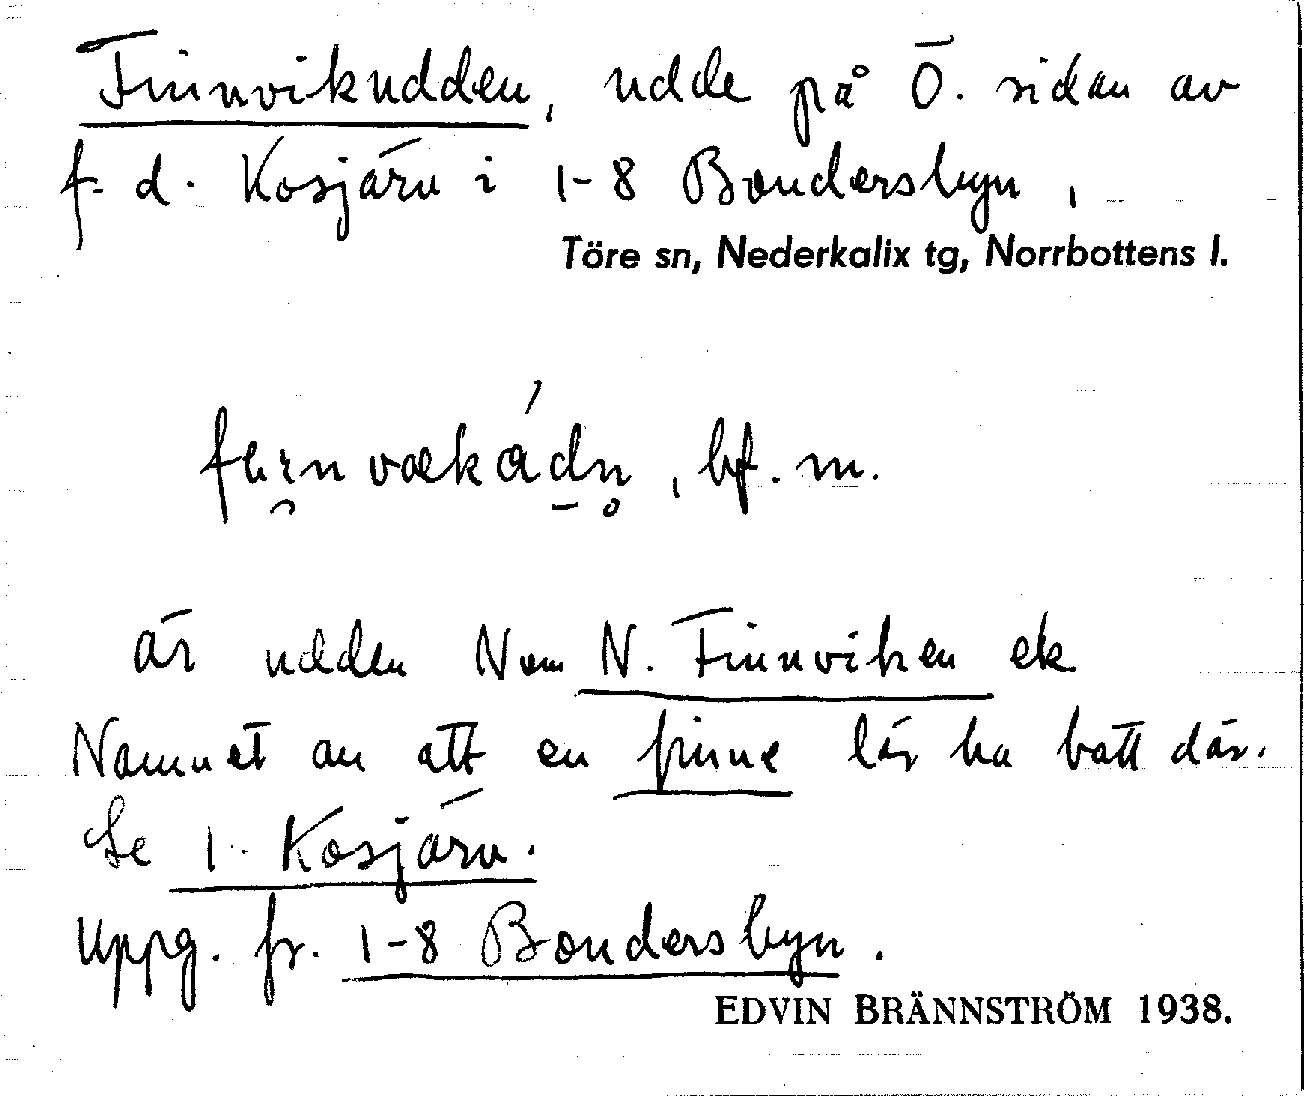 Finnvikudden, udde på Ö. sidan av
f. d. Kosjärv i 1-8 Bondersbyn,
Töre sn, Nederkalix tg, Norrbottens l.
bf. m.
Är udden N om N. Finnviken
Namnet av att en finne lär ha bott där.
Se 1. Kosjärv.
Uppg. fr. 1-8 Bondersbyn.
EDVIN BRÄNNSTRÖM 1938.